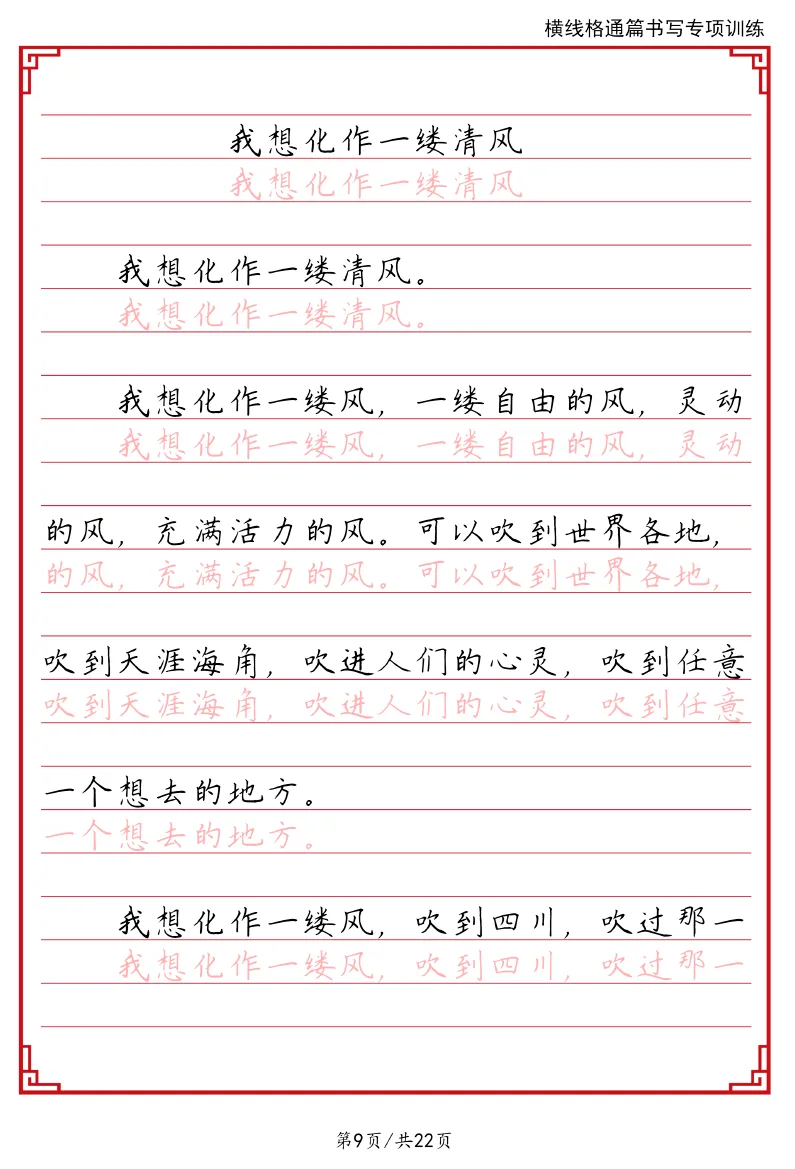 横线格通篇书写专项训练
我想化作一缕清风
我想化作一缕清风
我想化作一缕清风。
我想化作一缕清风。
我想化作一缕风，一缕自由的风，灵动
我想化作一缕风，一缕自由的风，灵动
的风，充满活力的风。可以吹到世界各地，
的风，充满活力的风。可以吹到世界各地，
吹到天涯海角，吹进人们的心灵，吹到任意
吹到天涯海角，吹进人们的心灵，吹到任意
一个想去的地方。
一个想去的地方。
我想化作一缕风，吹到四川，吹过那一
我想化作一缕风，吹到四川，吹过那一
第9页/共22页